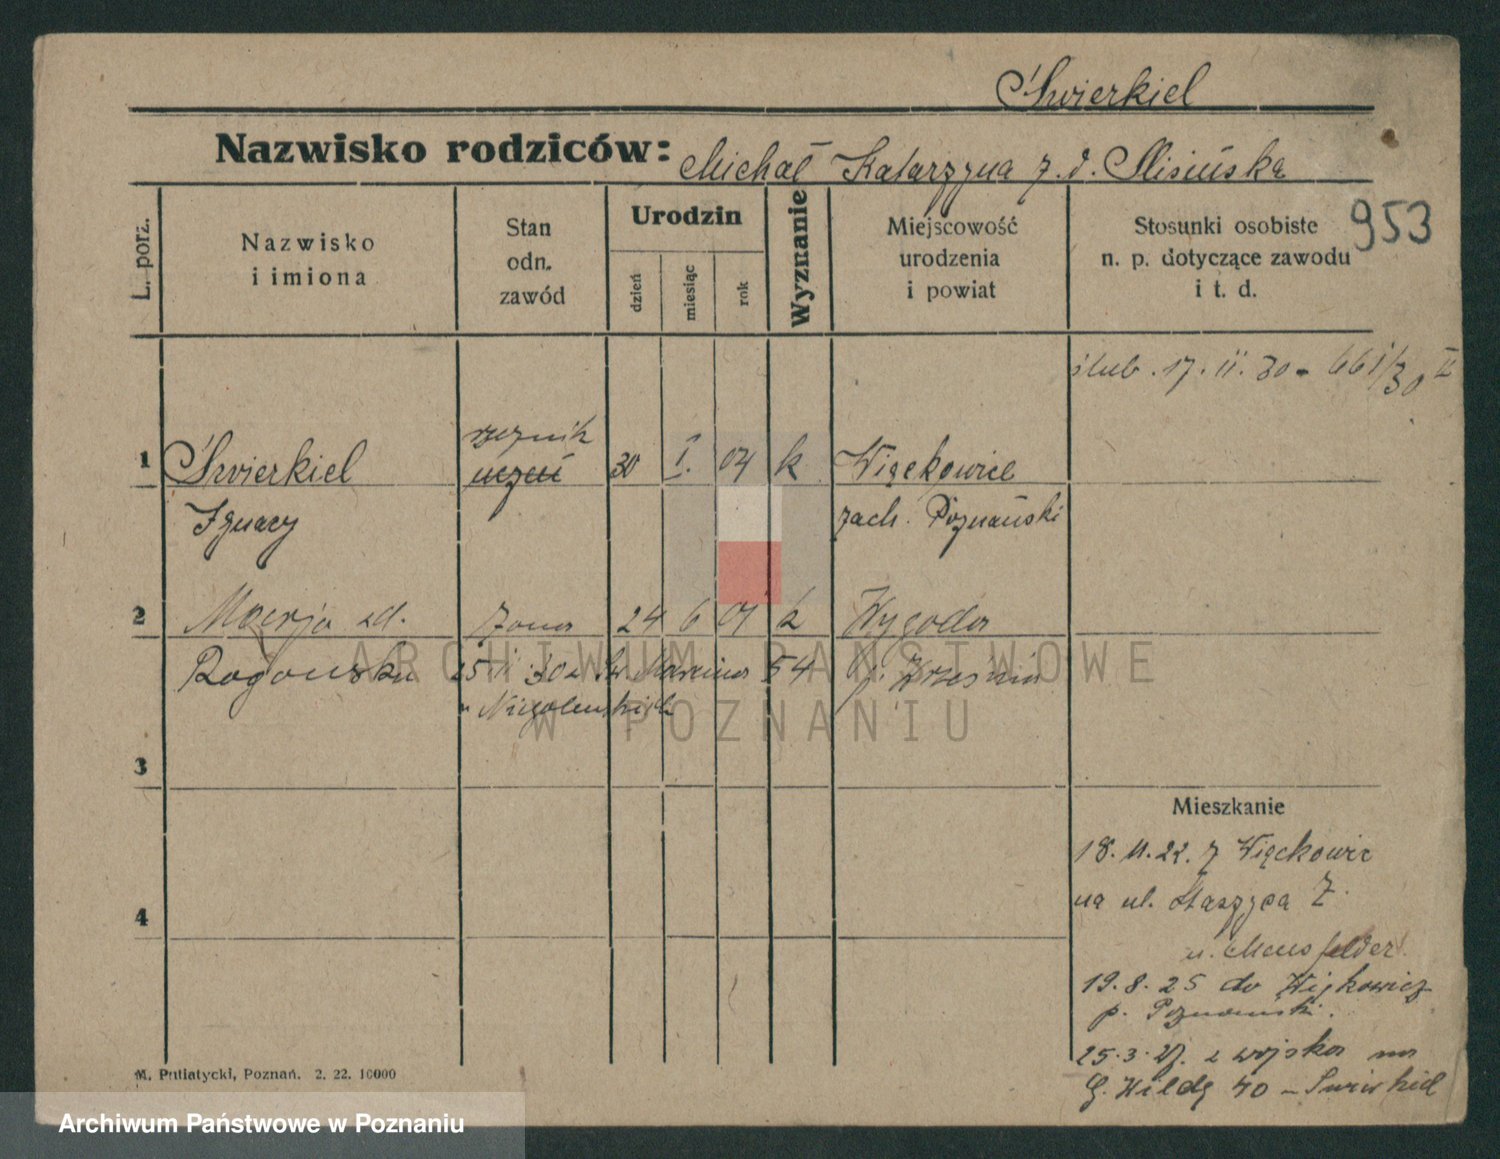 Świerkiel
Nazwisko rodziców: Michał Katarzyna z. d. Slisińska
L. porz.
Nazwisko
i imiona
Stan
odn.
zawód
Urodzin
dzień
miesiąc
rok
Wyznanie
Miejscowość
urodzenia
i powiat
Stosunki osobiste
n. p. dotyczące zawodu
i t. d.
953
ślub. 17. II. 30 - 661/30 II
rzeźnik
1 Świerkiel uczeń 30 I. 04 k Więckowice
Ignacy zach. Poznański
2 Marja zd. żona 24 6 01 k Wygoda
Rogowska 25 30 z Św. Marcina 54 p. Września
3
4
Mieszkanie
18. 11. 22. z Więckowic
na ul. Staszyca 7.
u. Mansfelder
19. 8. 25 do Więkowicz
p. Poznański.
25. 3. 27. z wojska na
G. Wildę 40 - Świerkiel
M. Putiatycki, Poznań. 2. 22. 10000
ARCHIWUM PAŃSTWOWE
W POZNANIU
Archiwum Państwowe w Poznaniu